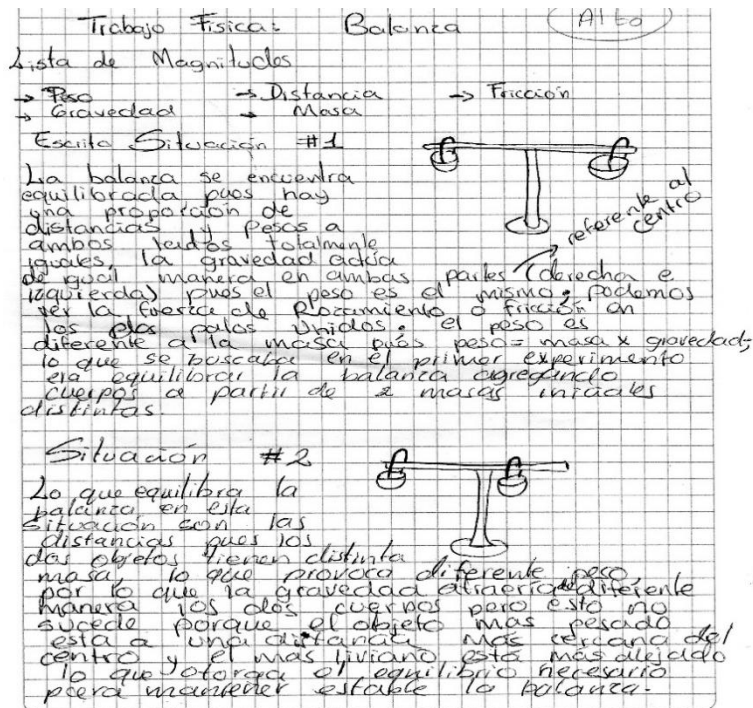 Trabajo Física: Balanza
Alto
Lista de Magnitudes
→ Peso → Distancia → Fricción
→ Gravedad → Masa
Escrito Situación #1
La balanza se encuentra
equilibrada pues hay
una proporción de
distancias y pesos a
ambos lados totalmente
iguales, la gravedad actúa
referente al
centro
de igual manera en ambas partes (derecha e
izquierda) pues el peso es el mismo; podemos
ver la fuerza de Rozamiento o fricción en
los palos Unidos. el peso es
diferente a la masa pues peso= masa x gravedad;
lo que se buscaba en el primer experimento
era equilibrar la balanza agregando
cuerpos a partir de 2 masas iniciales
distintas.
Situación #2
Lo que equilibra la
balanza en esta
situación son las
distancias pues los
dos objetos tienen distinta
masa, lo que provoca diferente peso,
por lo que la gravedad atraería diferente
manera los dos cuerpos pero esto no
sucede porque el objeto más pesado
está a una distancia más cercana del
centro y el más liviano está más alejado
lo que otorga el equilibrio necesario
para mantener estable la balanza.